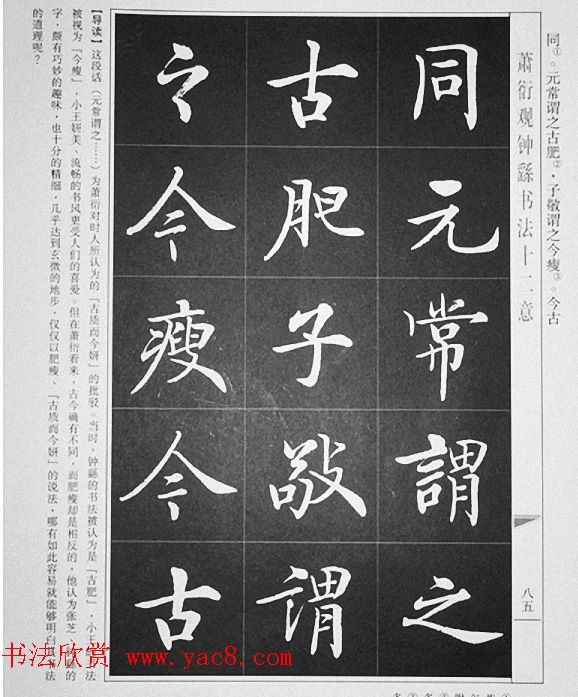 同①。元常谓之古肥②，子敬谓之今瘦③。今古
萧衍观钟繇书法十二意
八五
同元常謂之
古肥子敬谓
之今瘦今古
【导读】这段话（元常谓之……）为萧衍对时人所认为的「古质而今妍」的批驳。当时，钟繇的书法被认为是「古肥」，小王
法
被视为「今瘦」，小王妍美、流畅的书风更受人们的喜爱。但在萧衍看来，古今确有不同，而肥瘦却是相反的，他认为张芝、
的
字，颇有巧妙的趣味，也十分的精细，几乎达到玄微的地步，仅仅以肥瘦、「古质而今妍」的说法，哪有如此容易就能够明白
法
的道理呢？
书法欣赏 www.yac8.com